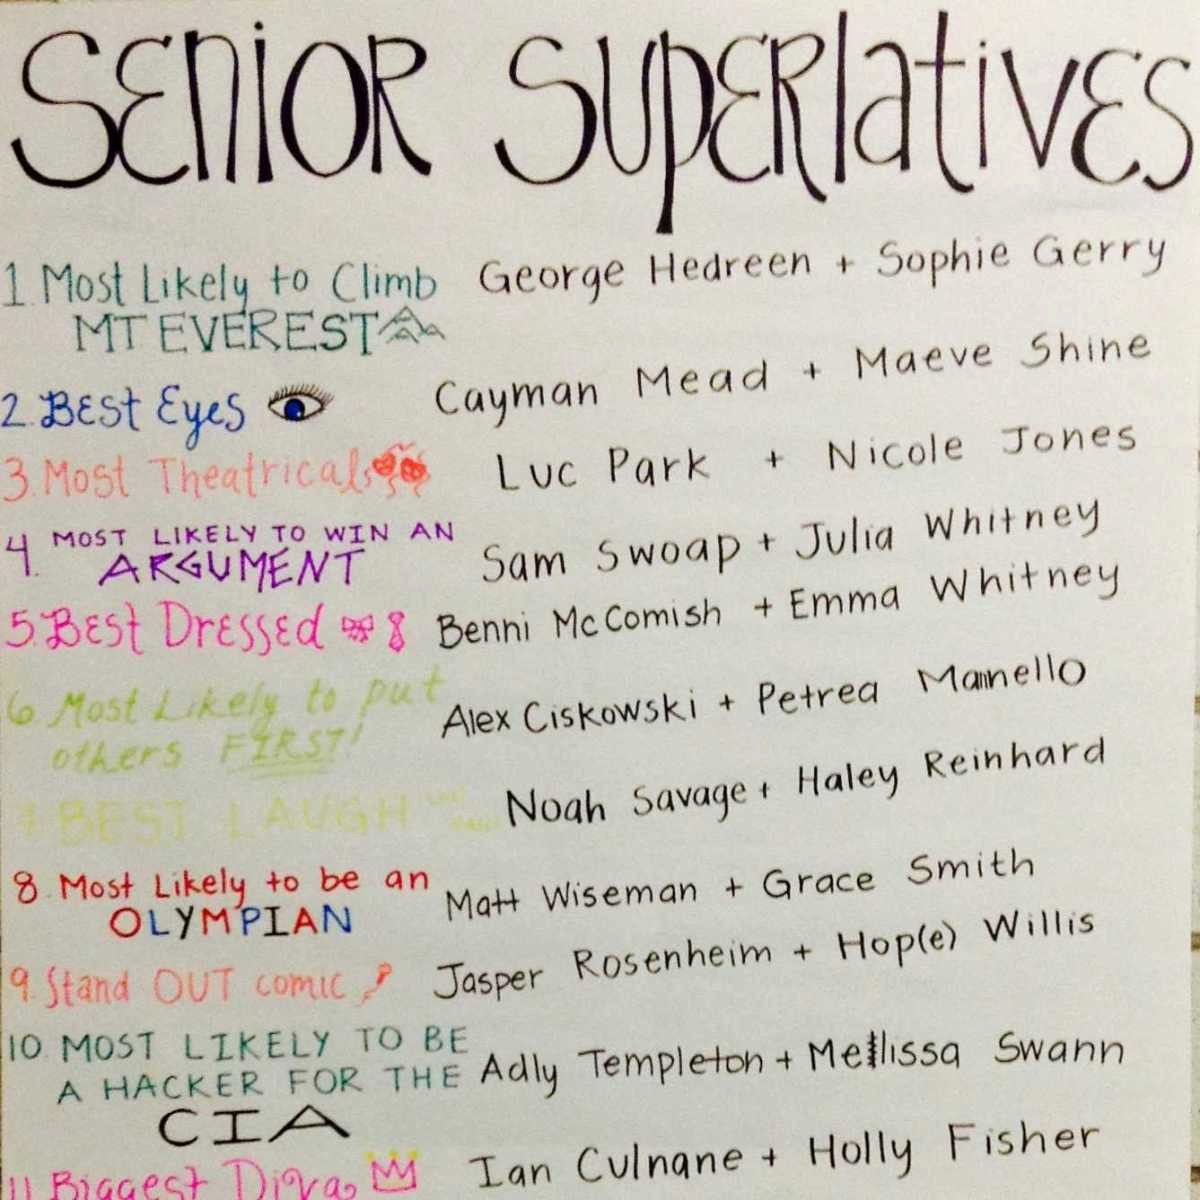 Senior Superlatives
1. Most Likely to Climb George Hedreen + Sophie Gerry
MT EVEREST
2. Best Eyes Cayman Mead + Maeve Shine
3. Most Theatricals Luc Park + Nicole Jones
4. MOST LIKELY TO WIN AN
ARGUMENT Sam Swoap + Julia Whitney
5. Best Dressed Benni McComish + Emma Whitney
6 Most Likely to put
others FIRST! Alex Ciskowski + Petrea Mainello
BEST LAUGH Noah Savage + Haley Reinhard
8. Most Likely to be an Matt Wiseman + Grace Smith
OLYMPIAN
9. Stand OUT comic Jasper Rosenheim + Hop(e) Willis
10 MOST LIKELY TO BE
A HACKER FOR THE Adly Templeton + Mellissa Swann
CIA
11 Biggest Diva Ian Culnane + Holly Fisher